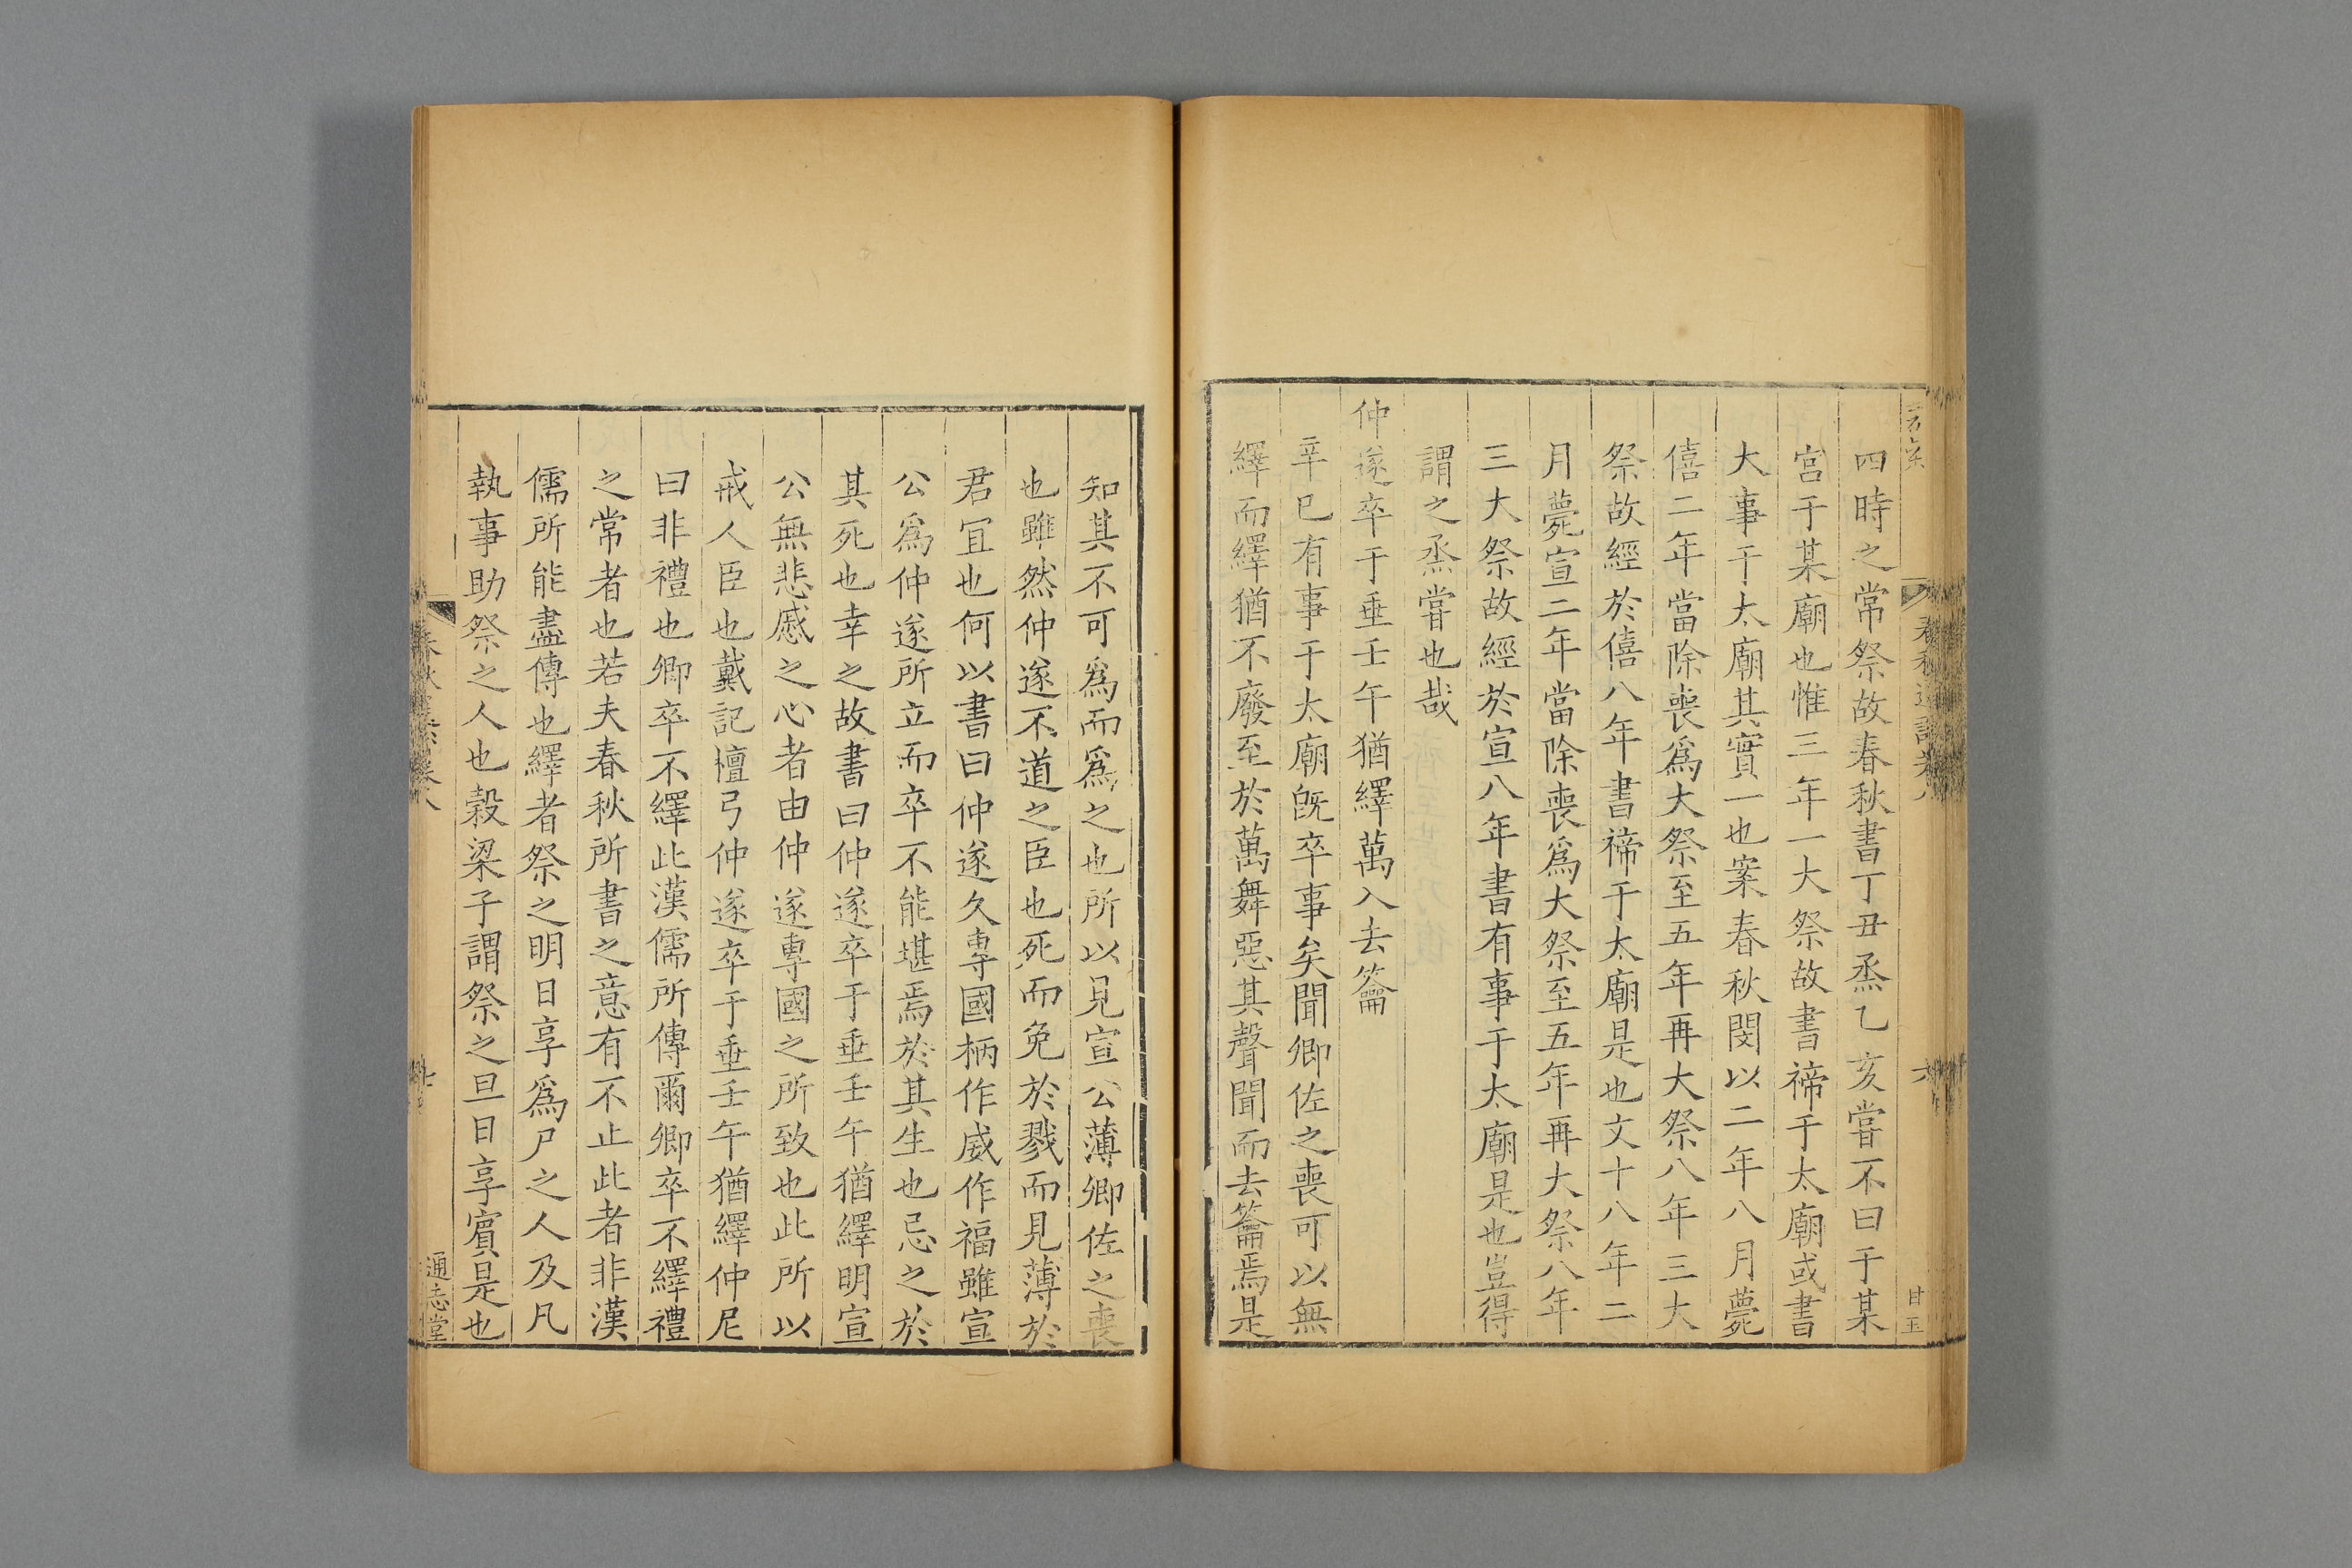 四時之常祭故春秋書丁丑烝乙亥嘗不曰于某
宮于某廟也惟三年一大祭故書禘于太廟或書
大事于太廟其實一也案春秋閔以二年八月薨
僖二年當除喪爲大祭至五年再大祭八年三大
祭故經於僖八年書禘于太廟是也文十八年二
月薨宣二年當除喪爲大祭至五年再大祭八年
三大祭故經於宣八年書有事于太廟是也豈得
謂之烝嘗也哉
仲遂卒于垂壬午猶繹萬入去籥
辛巳有事于太廟旣卒事矣聞卿佐之喪可以無
繹而繹猶不廢至於萬舞惡其聲聞而去籥焉是
甘玉
六
知其不可爲而爲之也所以見宣公薄卿佐之喪
也雖然仲遂不道之臣也死而免於戮而見薄於
君宜也何以書曰仲遂久專國柄作威作福雖宣
公爲仲遂所立而卒不能堪焉於其生也忌之於
其死也幸之故書曰仲遂卒于垂壬午猶繹明宣
公無悲慼之心者由仲遂專國之所致也此所以
戒人臣也戴記檀弓仲遂卒于垂壬午猶繹仲尼
曰非禮也卿卒不繹此漢儒所傳爾卿卒不繹禮
之常者也若夫春秋所書之意有不止此者非漢
儒所能盡傳也繹者祭之明日享爲尸之人及凡
執事助祭之人也榖梁子謂祭之旦日享賓是也
通志堂